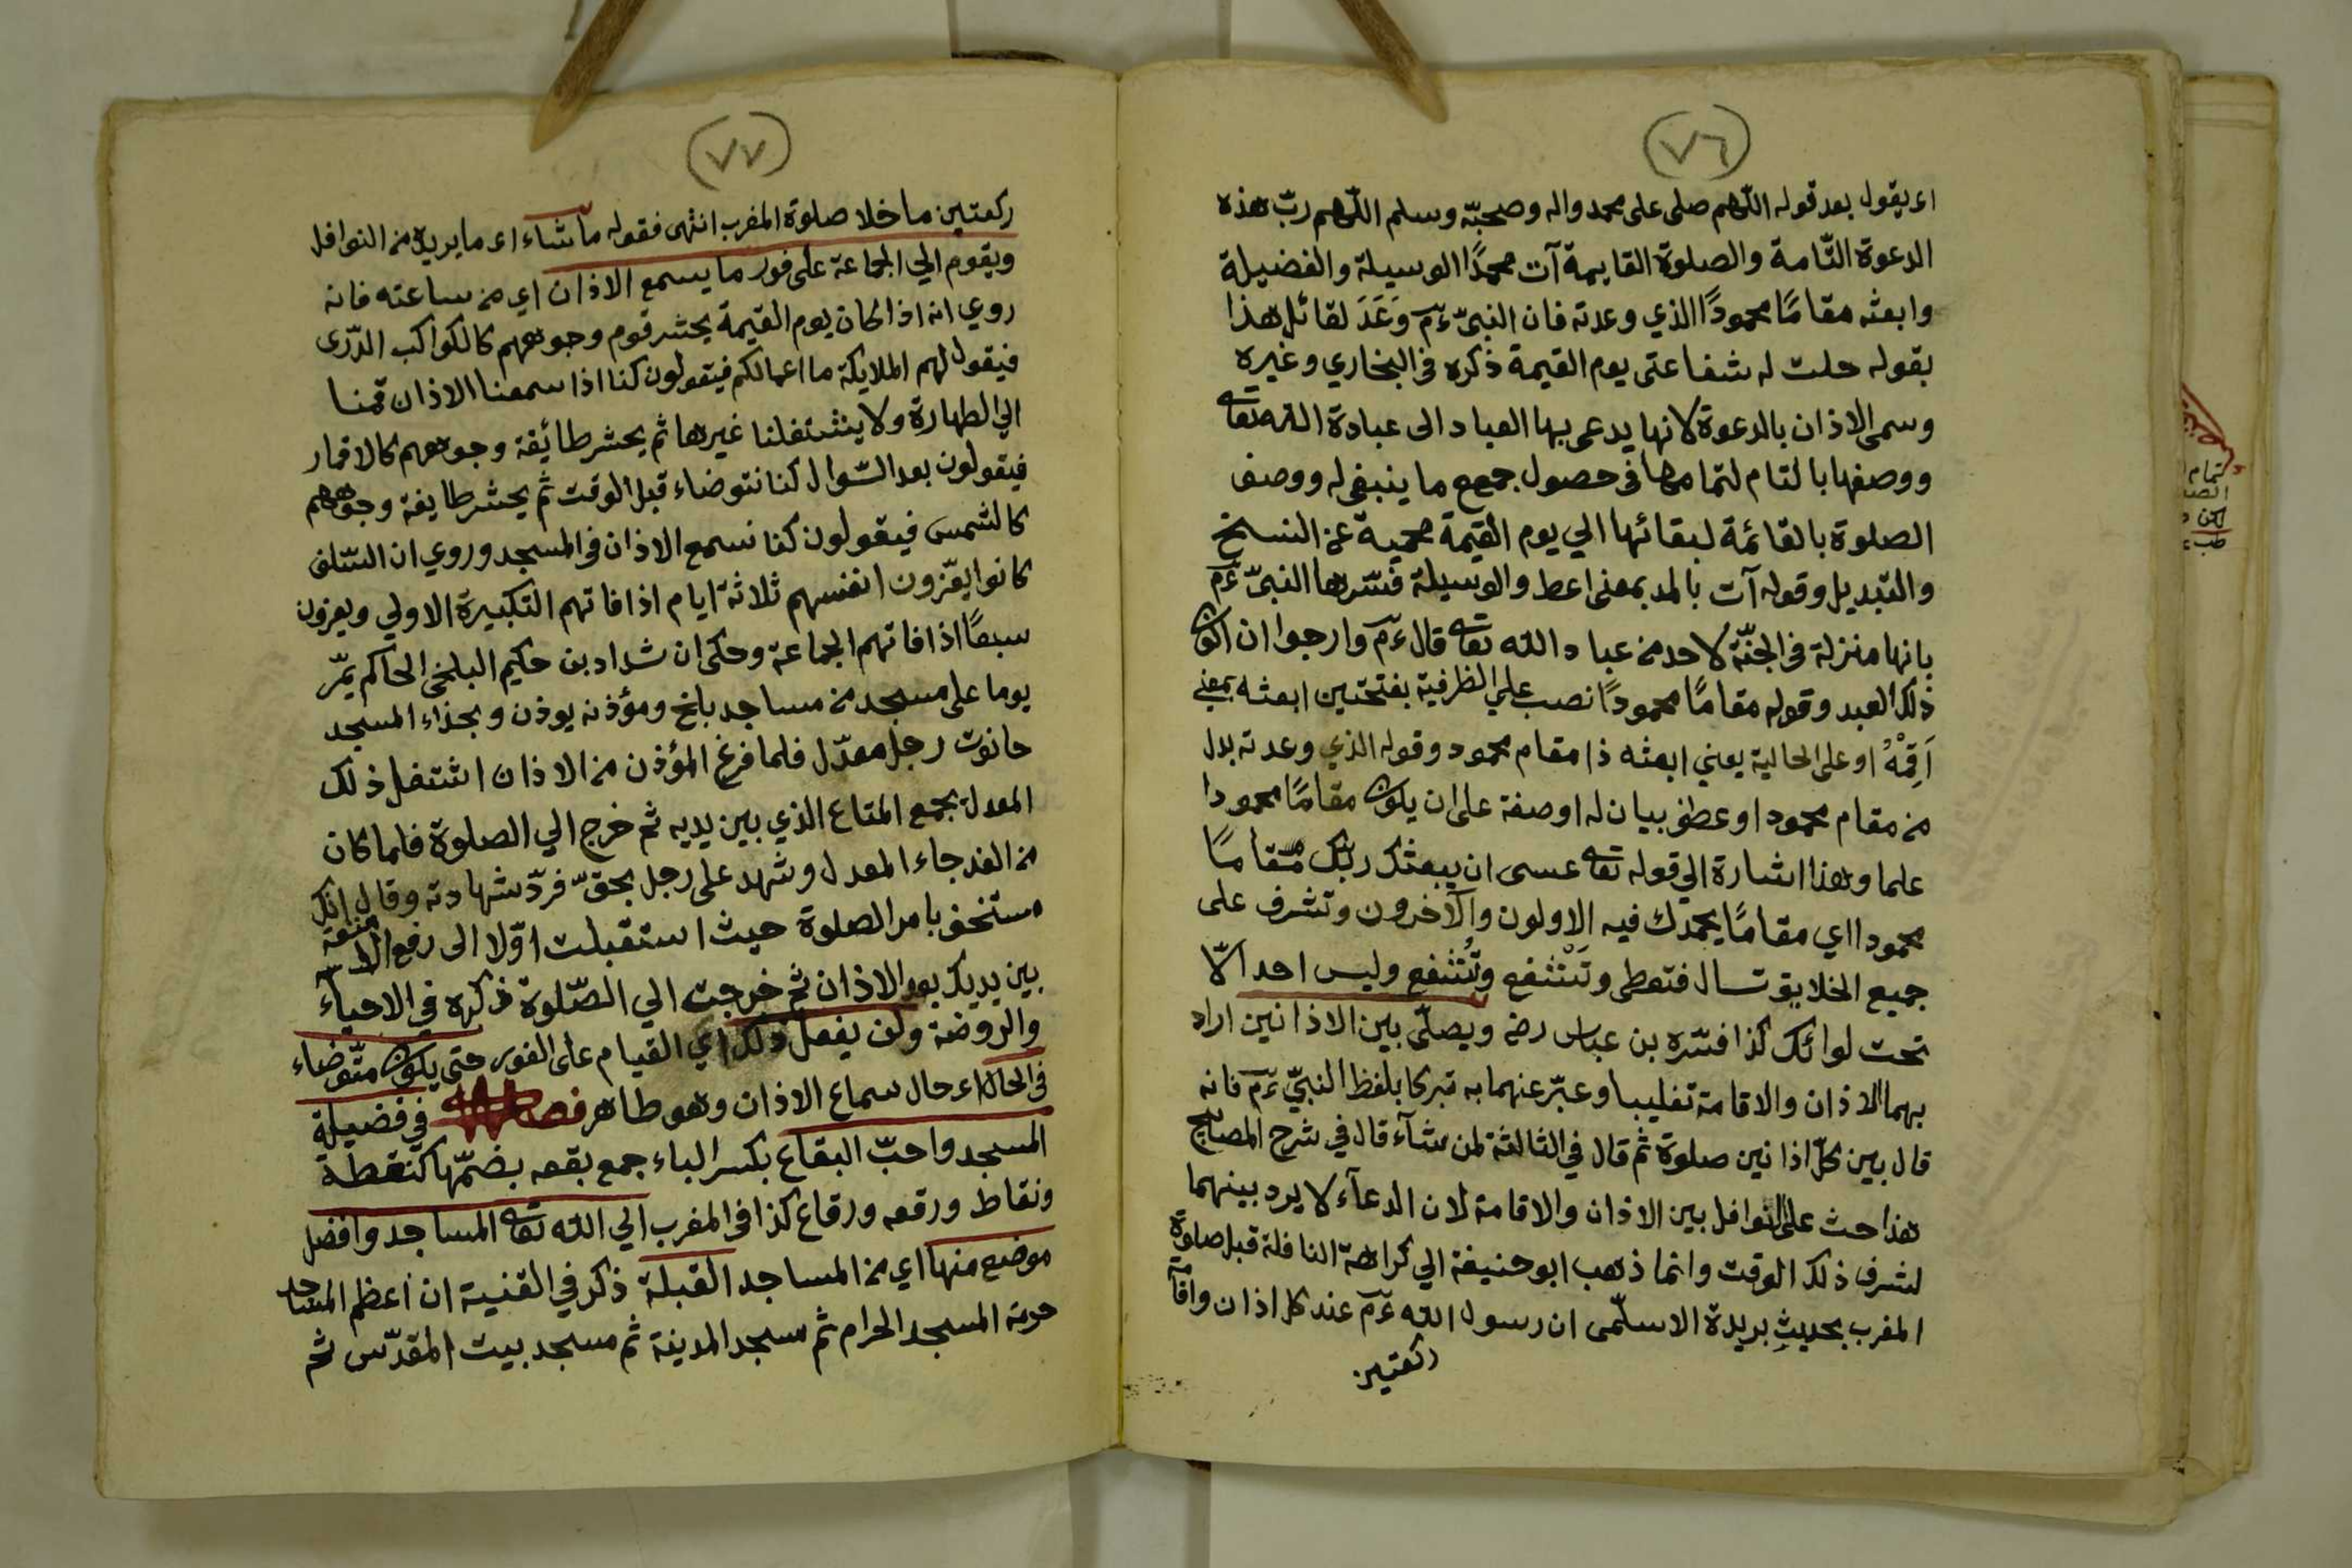 (٧٦)
اى يقول بعد قوله اللّهم صلى على محمد واله وصحبّه وسلم اللّهم ربّ هذه
الدعوة التّامة والصلوة القايمة آت محمدًا الوسيلة والفضيلة
وابعثه مقامًا محمودًا الذي وعدته فان النبيّ ءمّ وَعَدَ لقائل هذا
بقوله حلت له شفاعتى يوم القيمة ذكره فى البخاري وغيره
وسمى الاذان بالدعوة لانها يدعى بها العباد الى عبادة الله تعا
ووصفها بالتام لتمامها فى حصول جميع ما ينبغى له ووصف
الصلوة بالقائمة لبقائها الي يوم القيمة محمية عن النسخ
والتبديل وقوله آت بالمد بمعنى اعط والوسيلة فسّرها النبيّ ءمّ
بانها منزلة فى الجنّة لاحد من عباد الله تعا قال ءمّ وارجوا ان اكون
ذلك العبد وقوله مقامًا محمودًا نصب علي الظرفية بفتحتين ابعثه بمعني
اَقِمْهُ او على الحالية يعني ابعثه ذا مقام محمود وقوله الذي وعدته بدل
من مقام محمود او عطف بيان له او صفة على ان يكون مقامًا محمودا
علما وهذا اشارة الي قوله تعا عسى ان يبعثك ربّك مقامًا
محمودا اي مقامًا يحمدك فيه الاولون والآخرون وتشرف على
جميع الخلايق تسال فتعطى وتَشْفع وتُشفع وليس احد الّا
تحت لوائك كذا فسّره بن عباس رضـ ويصلّى بين الاذانين اراد
بهما الاذان والاقامة تغليبا وعبّر عنهما به تبركا بلفظ النبيّ ءمّ فانه
قال بين كلّ اذانين صلوة ثم قال في الثالثة لمن شآء قال في شرح المصابيح
هذا حث على النوافل بين الاذان والاقامة لان الدعآء لا يرد بينهما
لشرف ذلك الوقت وانما ذهب ابو حنيفة الي كراهة النافلة قبل صلوة
المغرب بحديثِ بريدة الاسلّمى ان رسول الله ءمّ عند كل اذان واقامة
ركعتين
(٧٧)
ركعتين ما خلا صلوة المغرب انتهى فقوله ما شاء اى ما يريد من النوافل
ويقوم الي الجماعة على فور ما يسمع الاذان اي من ساعته فانه
روي انه اذا كان يوم القيمة يحشر قوم وجوههم كالكواكب الدّرى
فيقول لهم الملايكة ما اعمالكم فيقولون كنا اذا سمعنا الاذان قمنا
الي الطهارة ولا ينشتغلنا غيرها ثم يحشر طايئفة وجوههم كالاقمار
فيقولون بعد السّوال كنا نتوضاء قبل الوقت ثم يحشر طايفة وجوههم
كالشمس فيقولون كنا نسمع الاذان فى المسجد وروي ان السّلف
كانوا يعّزون انفسهم ثلاثة ايام اذا فاتهم التكبيرة الاولي ويعزون
سبعًا اذا فاتهم الجماعة وحكى ان شداد بن حكيم البلخى الحاكم يمّر
يوما على مسجد من مساجد بلخ ومؤذنه يوذن وبحذاء المسجد
حانوت رجل معدّل فلما فرغ المؤذن من الاذان اشتغل ذلك
المعدل بجمع المتاع الذي بين يديه ثم خرج الي الصلوة فلما كان
من الغد جاء المعدل وشهد على رجل بحقّ فردّ شهادته وقال انك
مستخف بامر الصلوة حيث استقبلت اوّلا الى رفع الامتعة
بين يديك بعد الاذان ثم خرجت الي الصّلوة ذكره في الاحيآء
والروضة ولن يفعل ذلك اي القيام على الفور حتى يكون متّوضاء
فى الحال اى حال سماع الاذان وهو طاهر فصل في فضيلة
المسجد واحبّ البقاع بكسر الباء جمع بقعه بضمّها كنقطة
ونقاط ورقعه ورقاع كذا فى المغرب الي الله تعا المساجد وافضل
موضع منها اي من المساجد القبلة ذكر في القنية ان اعظم المساجد
حرمة المسجد الحرام ثم مسجد المدينة ثم مسجد بيت المقدّس ثم